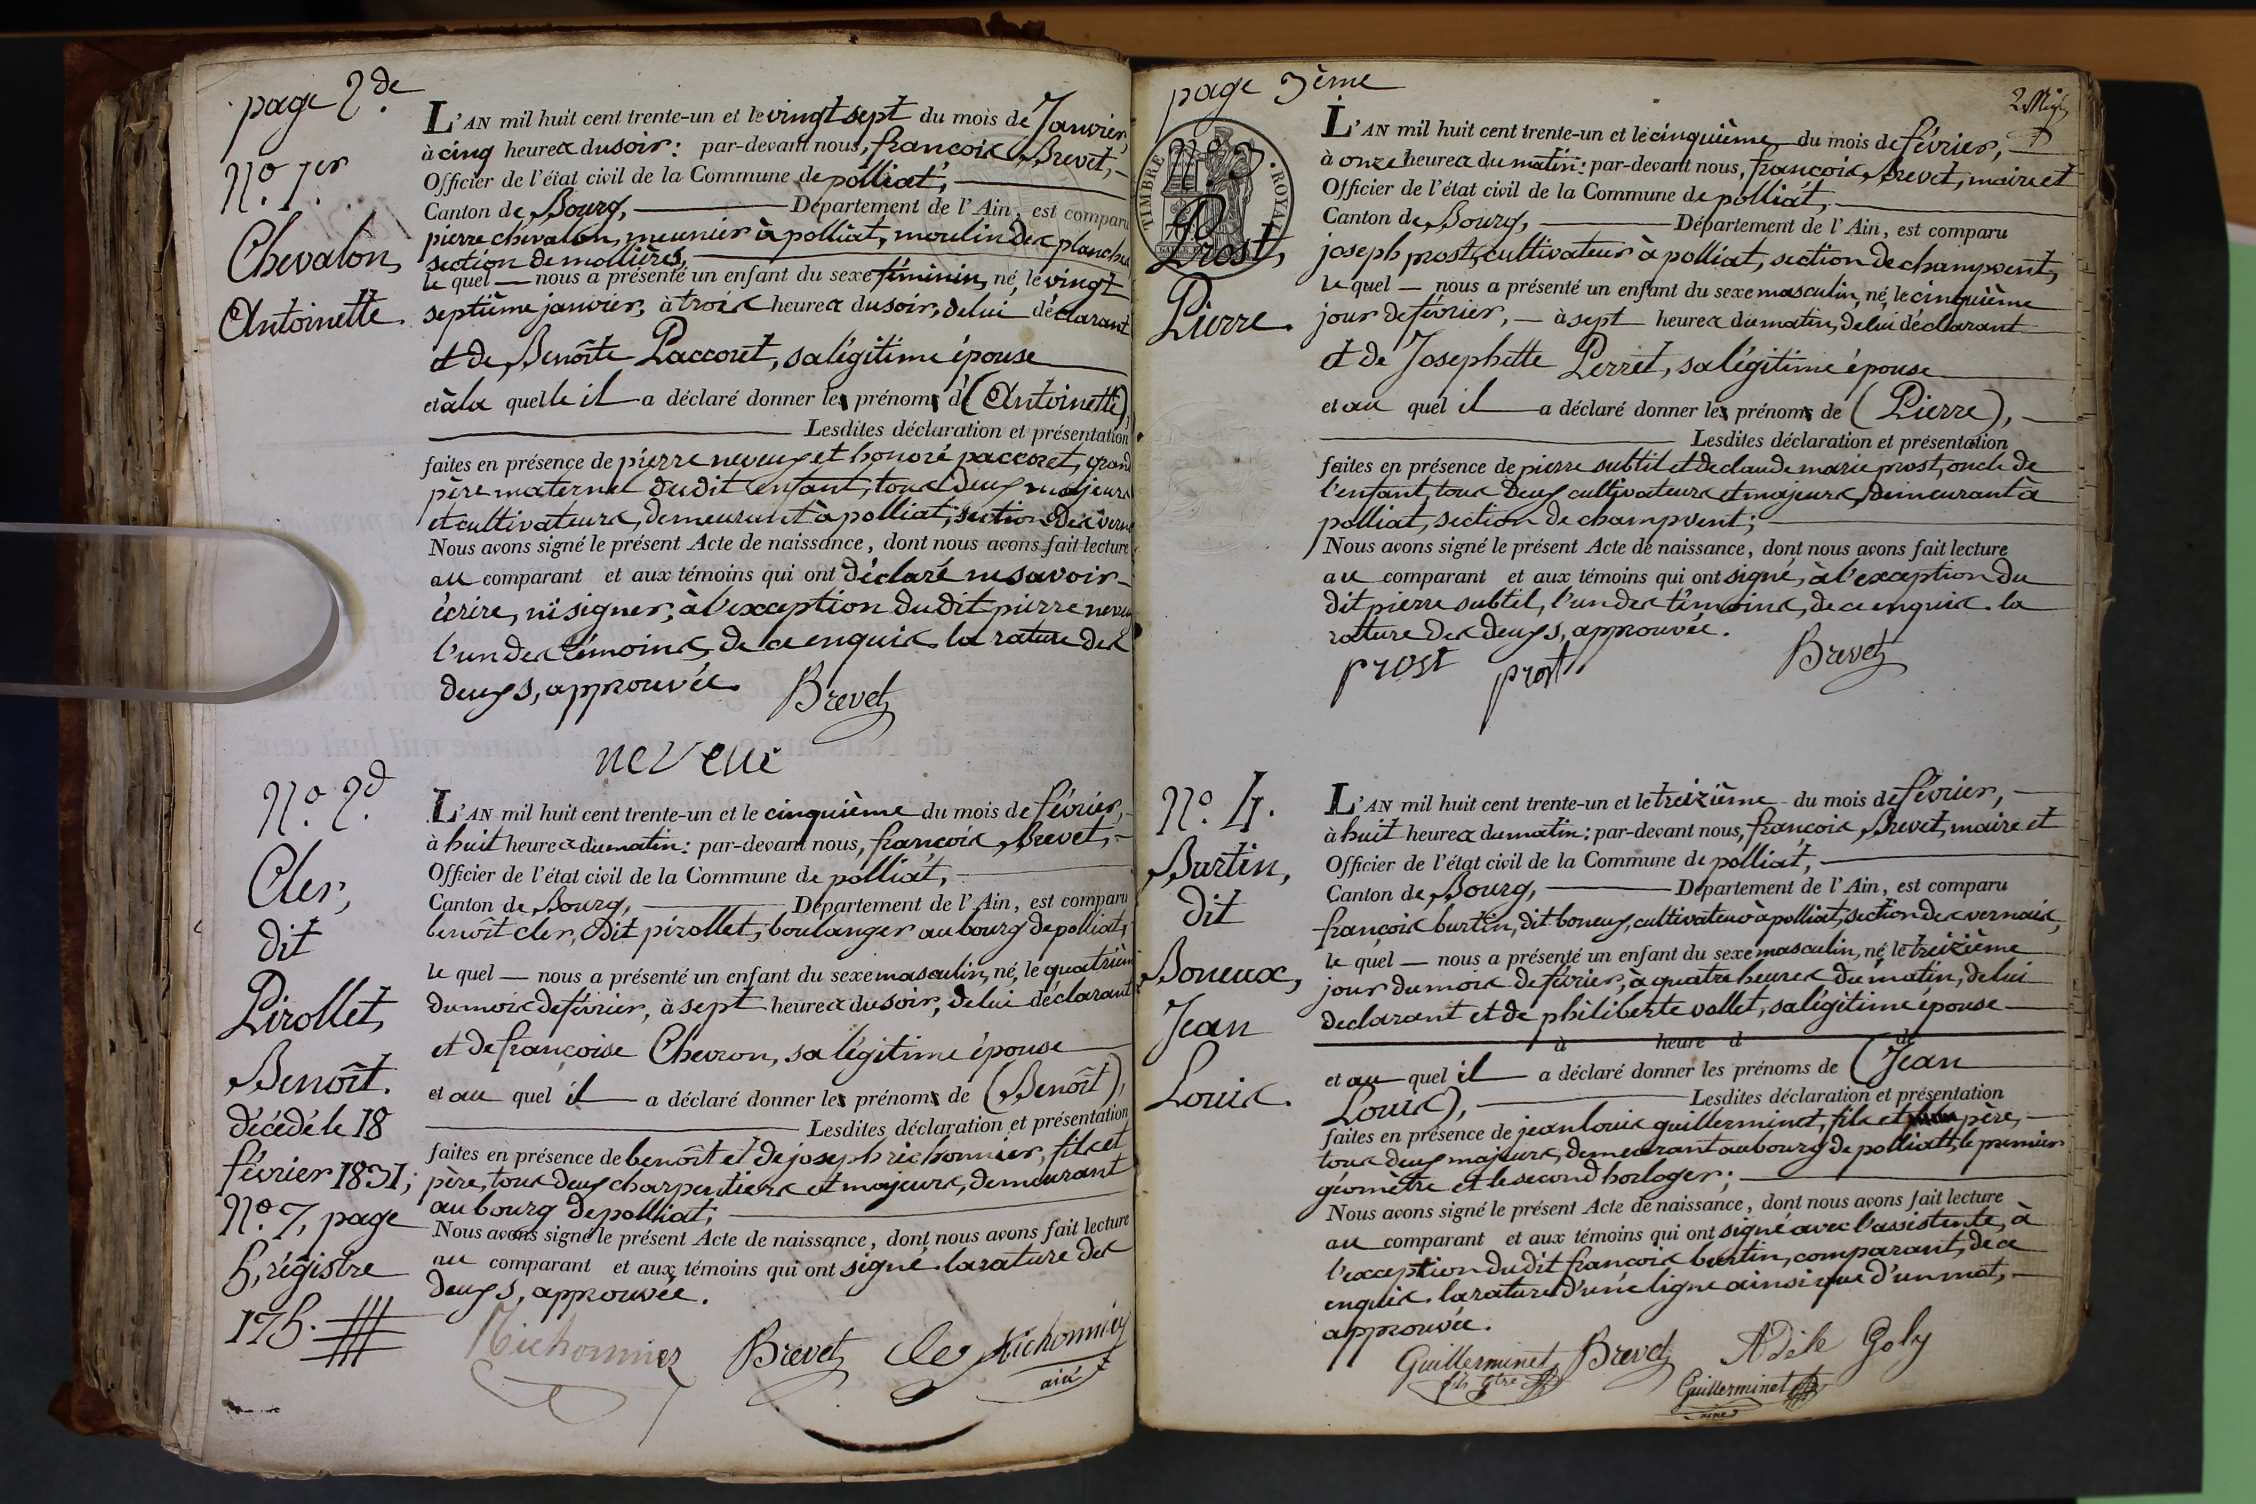 page 2de
N.o 1er
Chevalon,
Antoinette.
L'AN mil huit cent trente-un et le vingt sept du mois de Janvier,
à cinq heures du soir : par-devant nous, françois Brevet,
Officier de l'état civil de la Commune de polliat,
Canton de Bourg, Département de l'Ain, est comparu
pierre chevalon, meunier à polliat, moulin des planches
section de mollières,
le quel nous a présenté un enfant du sexe féminin, né, le vingt
septième janvier, à trois heures du soir, de lui déclarant
et de Benoîte Paccoret, sa légitime épouse
et à la quelle il a déclaré donner les prénoms de (Antoinette),
Lesdites déclaration et présentation
faites en présence de pierre neveux et honoré paccoret, grand
père maternel dudit enfant, tous deux majeurs
et cultivateurs, demeurant à polliat, section des vern
Nous avons signé le présent Acte de naissance, dont nous avons fait lecture
au comparant et aux témoins qui ont déclaré ne savoir
écrire, ni signer, à l'exception dudit pierre neveu
l'un des témoins, de ce enquis. la rature des
deux s, approuvée.
Brevet
neveue
N.o 2d
Cler,
dit
Pirollet,
Benoît.
décédé le 18
février 1831;
N.o 7, page
5, régistre
175.
L'AN mil huit cent trente-un et le cinquième du mois de février,
à huit heures du matin : par-devant nous, françois Brevet,
Officier de l'état civil de la Commune de polliat,
Canton de Bourg, Département de l'Ain, est comparu
benoît cler, dit pirollet, boulanger au bourg de polliat,
le quel nous a présenté un enfant du sexe masculin, né, le quatrième
du mois de février, à sept heures du soir, de lui déclarant
et de françoise Chevron, sa légitime épouse
et au quel il a déclaré donner les prénoms de (Benoît),
Lesdites déclaration et présentation
faites en présence de benoît et de joseph richonnier, fils et
père, tous deux charpentiers et majeurs, demeurant
au bourg de polliat;
Nous avons signé le présent Acte de naissance, dont nous avons fait lecture
au comparant et aux témoins qui ont signé. la rature des
deux s, approuvée.
Richonnier Brevet Cler Richonnier
ainé
page 3ème
N.o 3.
TIMBRE ROYAL
Prost,
Pierre.
L'AN mil huit cent trente-un et le cinquième du mois de février,
à onze heures du matin : par-devant nous, françois Brevet, maire et
Officier de l'état civil de la Commune de polliat,
Canton de Bourg, Département de l'Ain, est comparu
joseph prost, cultivateur à polliat, section de champvent,
le quel nous a présenté un enfant du sexe masculin, né, le cinquième
jour de février, à sept heures du matin, de lui déclarant
et de Josephette Perret, sa légitime épouse
et au quel il a déclaré donner les prénoms de (Pierre),
Lesdites déclaration et présentation
faites en présence de pierre subtil et de claude marie prost, oncle de
l'enfant, tous deux cultivateurs et majeurs, demeurant à
polliat, section de champvent;
Nous avons signé le présent Acte de naissance, dont nous avons fait lecture
au comparant et aux témoins qui ont signé, à l'exception du
dit pierre subtil, l'un des témoins, de ce enquis. la
rature des deux s, approuvée.
prost prost Brevet
N.o 4.
Burtin,
dit
Boneux,
Jean
Louis.
L'AN mil huit cent trente-un et le treizième du mois de février,
à huit heures du matin : par-devant nous, françois Brevet, maire et
Officier de l'état civil de la Commune de polliat,
Canton de Bourg, Département de l'Ain, est comparu
françois burtin, dit boneux, cultivateur à polliat, section des vernais,
le quel nous a présenté un enfant du sexe masculin, né, le treizième
jour du mois de février, à quatre heures du matin, de lui
declarant et de philiberte vollet, sa légitime épouse
à heure d de
et au quel il a déclaré donner les prénoms de (Jean
Louis),
Lesdites déclaration et présentation
faites en présence de jean louis guillerminet, fils et père,
tous deux majeurs, demeurant au bourg de polliat, le premier
géomètre et le second horloger;
Nous avons signé le présent Acte de naissance, dont nous avons fait lecture
au comparant et aux témoins qui ont signé avec l'assistente, à
l'exception dudit françois burtin, comparant, de ce
enquis. la rature d'une ligne ainsi que d'un mot,
approuvée.
Guillerminet Brevet Adèle Goly
fils gtre
Guillerminet
père